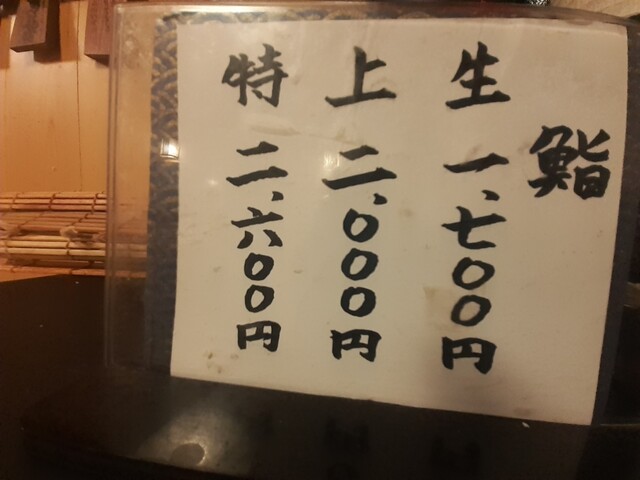 鮨
生 一、七〇〇円
上 二、〇〇〇円
特 二、六〇〇円